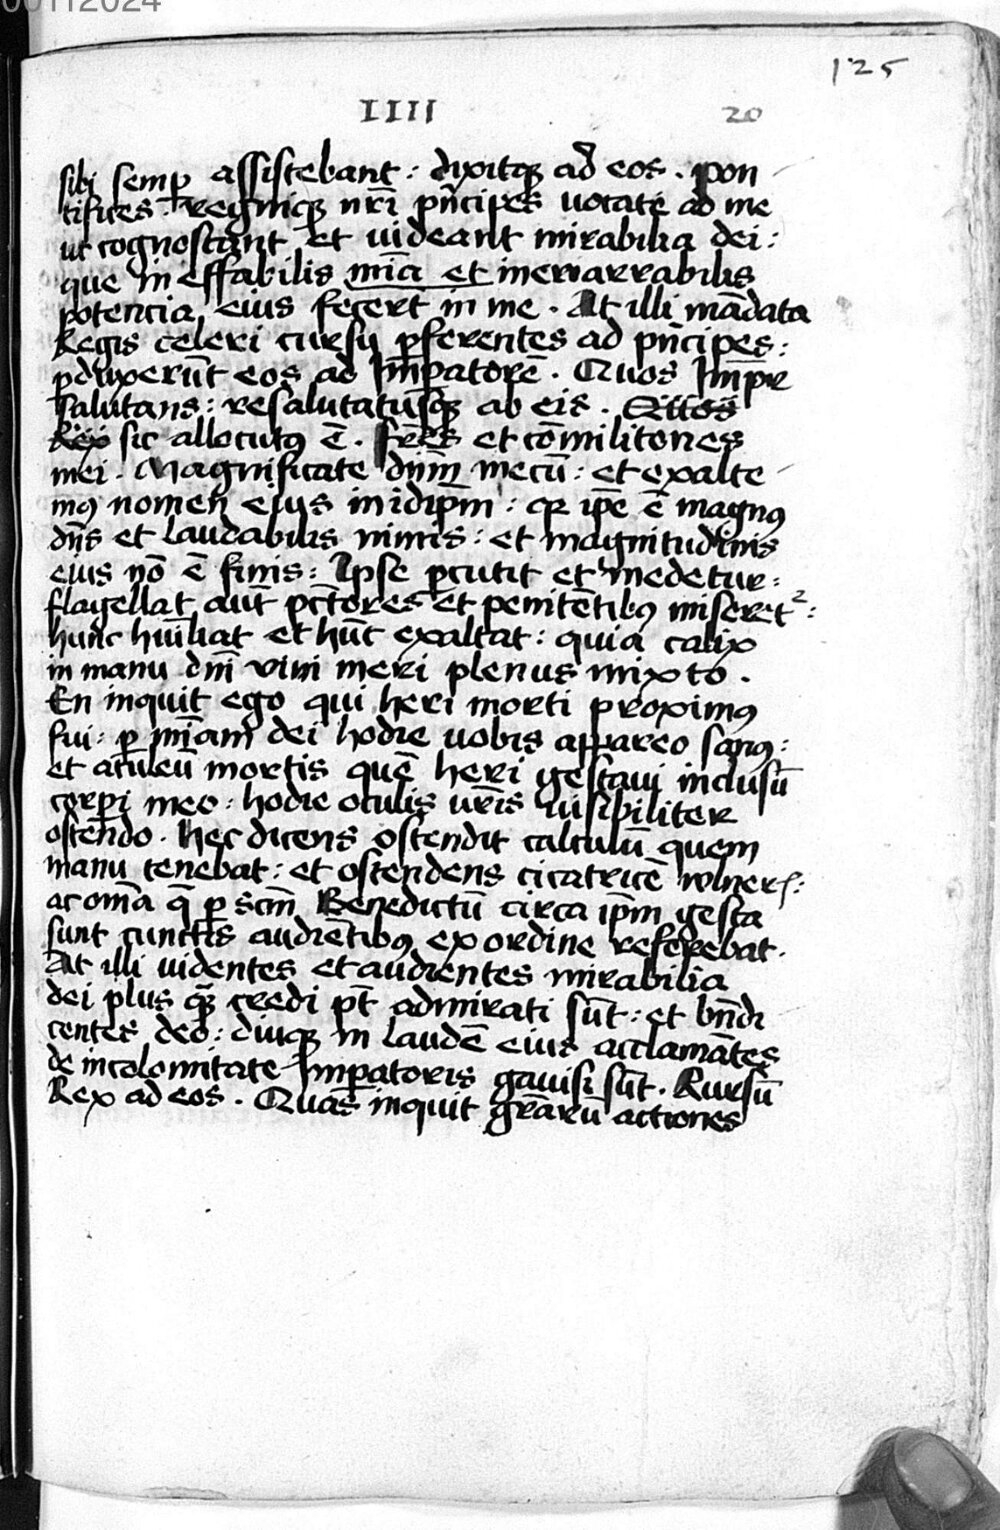 00112024
125
IIII 20
sibi semp̱ assistebant : dixitqꝫ ad eos . pon
tifices . regniqꝫ nr̄i pn̄cipes uocate ad me
ut cognoscant et uideant mirabilia dei :
que in effabilis mīa et inennarrabilis
potencia eius fecer̄t in me . At illi mādata
Regis celeri cursu ꝑferentes ad pn̄cipes :
ꝑduxerūt eos ad Imꝑatorē . Quos Imꝑr
salutans : resalutatusqꝫ ab eis .
Rex sic allocutꝰ ē . fr̄es et cōmilitones
mei . Magnificate dn̄m mecū : et exalte
mꝰ nomen eius in idip̄m : qꝛ ip̄e ē magnꝰ
dn̄s et laudabilis nimis : et magnitudinis
eius nō ē finis : Ipse ꝑcutit et medetur :
flagellat aūt pctōres et penitētibꝰ miseretᷣ :
hunc hūiliat et hūc exaltat : quia calix
in manu dn̄i vini meri plenus mixto .
En inquit ego qui heri morti proximꝰ
fui : ꝑ mīam dei hodie uobis appareo sanꝰ :
et aculeū mortis quē heri gestaui inclusū
corpori meo : hodie oculis ur̄is uisibiliter
ostendo . hec dicens ostendit calculū quem
manu tenebat : et ostendens cicatricē wlnerꝭ :
ac om̄a q̄ ꝑ sc̄m Benedictū circa ip̄m gesta
sunt cunctis audiētibꝰ ex ordine referebat .
At illi uidentes et audientes mirabilia
dei plus qꝫ̄ credi pt̄ admirati sūt : et bn̄di
centes deo : diuqꝫ in laudē eius acclamātes
de incolomitate Imꝑatoris gauisi sūt . Rursū
Rex ad eos . Quas inquit gr̄arū actiones